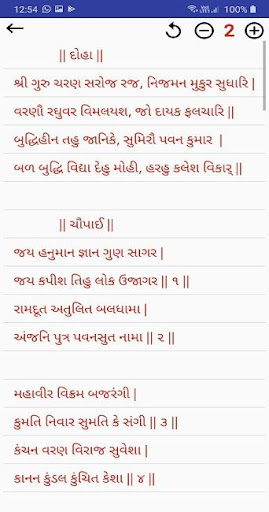 12:54
2
|| દોહા ||
શ્રી ગુરુ ચરણ સરોજ રજ, નિજમન મુકુર સુધારિ |
વરણૌ રઘુવર વિમલયશ, જો દાયક ફલચારિ ||
બુદ્ધિહીન તહુ જાનિકે, સુમિરૌ પવન કુમાર |
બળ બુદ્ધિ વિદ્યા દેહુ મોહી, હરહુ કલેશ વિકાર્ ||
|| ચૌપાઈ ||
જય હનુમાન જ્ઞાન ગુણ સાગર |
જય કપીશ તિહુ લોક ઉજાગર || ૧ ||
રામદૂત અતુલિત બલધામા |
અંજનિ પુત્ર પવનસુત નામા || ૨ ||
મહાવીર વિક્રમ બજરંગી |
કુમતિ નિવાર સુમતિ કે સંગી || ૩ ||
કંચન વરણ વિરાજ સુવેશા |
કાનન કુંડલ કુંચિત કેશા || ૪ ||